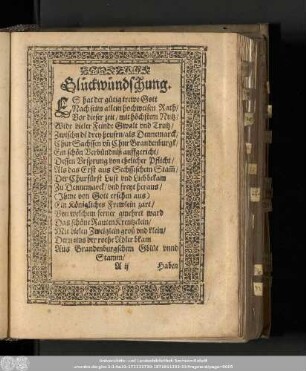 Glückwündschung.
ES hat der gütig trewe Gott
Nach sein allein hochweisen Rath/
Vor dieser zeit/ mit höchstem Nutz/
Wider vieler Feinde Gwalt und Trutz/
Zwischen drey heusen/ als Dennemarck/
Chur Sachssen vñ Chur Brandenburgk/
Ein schön Verbündnüs auffgericht/
Dessen Ursprung von ehelicher Pflicht/
Als das Erst aus Sechssischem Stam̃/
Der Churfürst Lust und Lieb bkam
Zu Dennemarck/ und freyt heraus/
Ihme von Gott ersehen aus/
Ein Königliches Frewlein zart/
Von welchem ferner gnehret ward
Das schöne Rauten Krentzlein/
Mit vielen Zweiglein gros und klein/
Deren eins der rothe Adler bkam
Aus Brandenburgschem Blüt unnd
Stamm/
A ij Haben